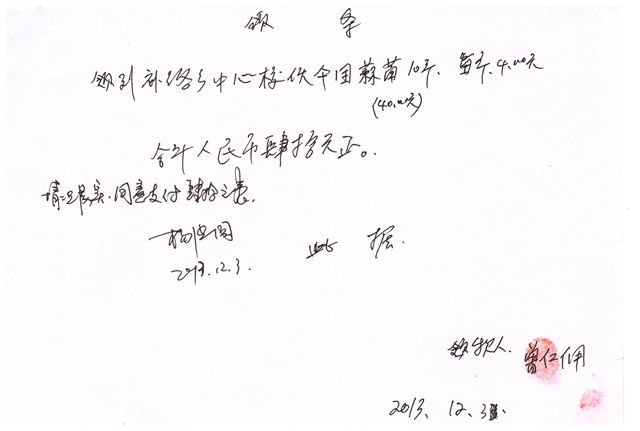 领 条
领到补络乡中心校伙牛田蒜苗10斤、每斤4.00元
(40.00元)
合计人民币肆拾元正。
情况属实、同意支付肆拾元整。
2013.12.3.
此 据.
领款人.曾仁佣
2013、12.3